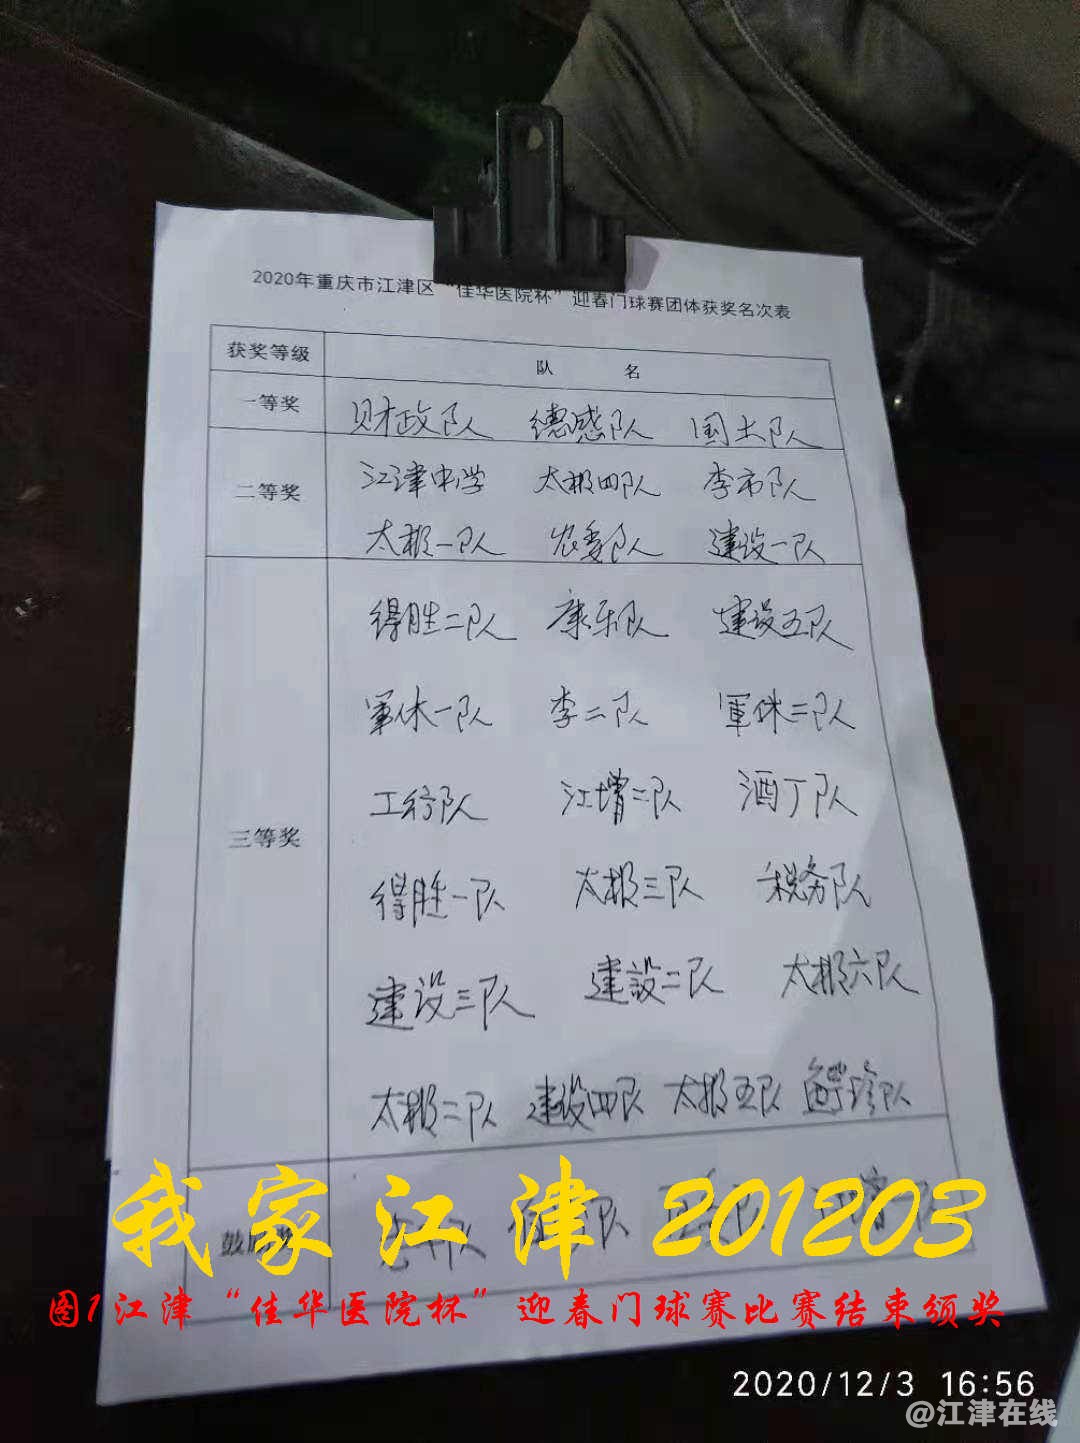 2020年重庆市江津区“佳华医院杯”迎春门球赛团体获奖名次表
获奖等级 队 名
一等奖 财政队 德感队 国土队
二等奖 江津中学 太极四队 李市队
太极一队 农委队 建设一队
三等奖
得胜二队 康乐队 建设五队
军休一队 李二队 軍休二队
工行队 江增二队 酒丁队
得胜一队 太极三队 税务队
建设三队 建設二队 太极六队
太极二队 建设四队 太极五队
我家江津 201203
图1江津“佳华医院杯”迎春门球赛比赛结束颁奖
2020/12/3 16:56
@江津在线